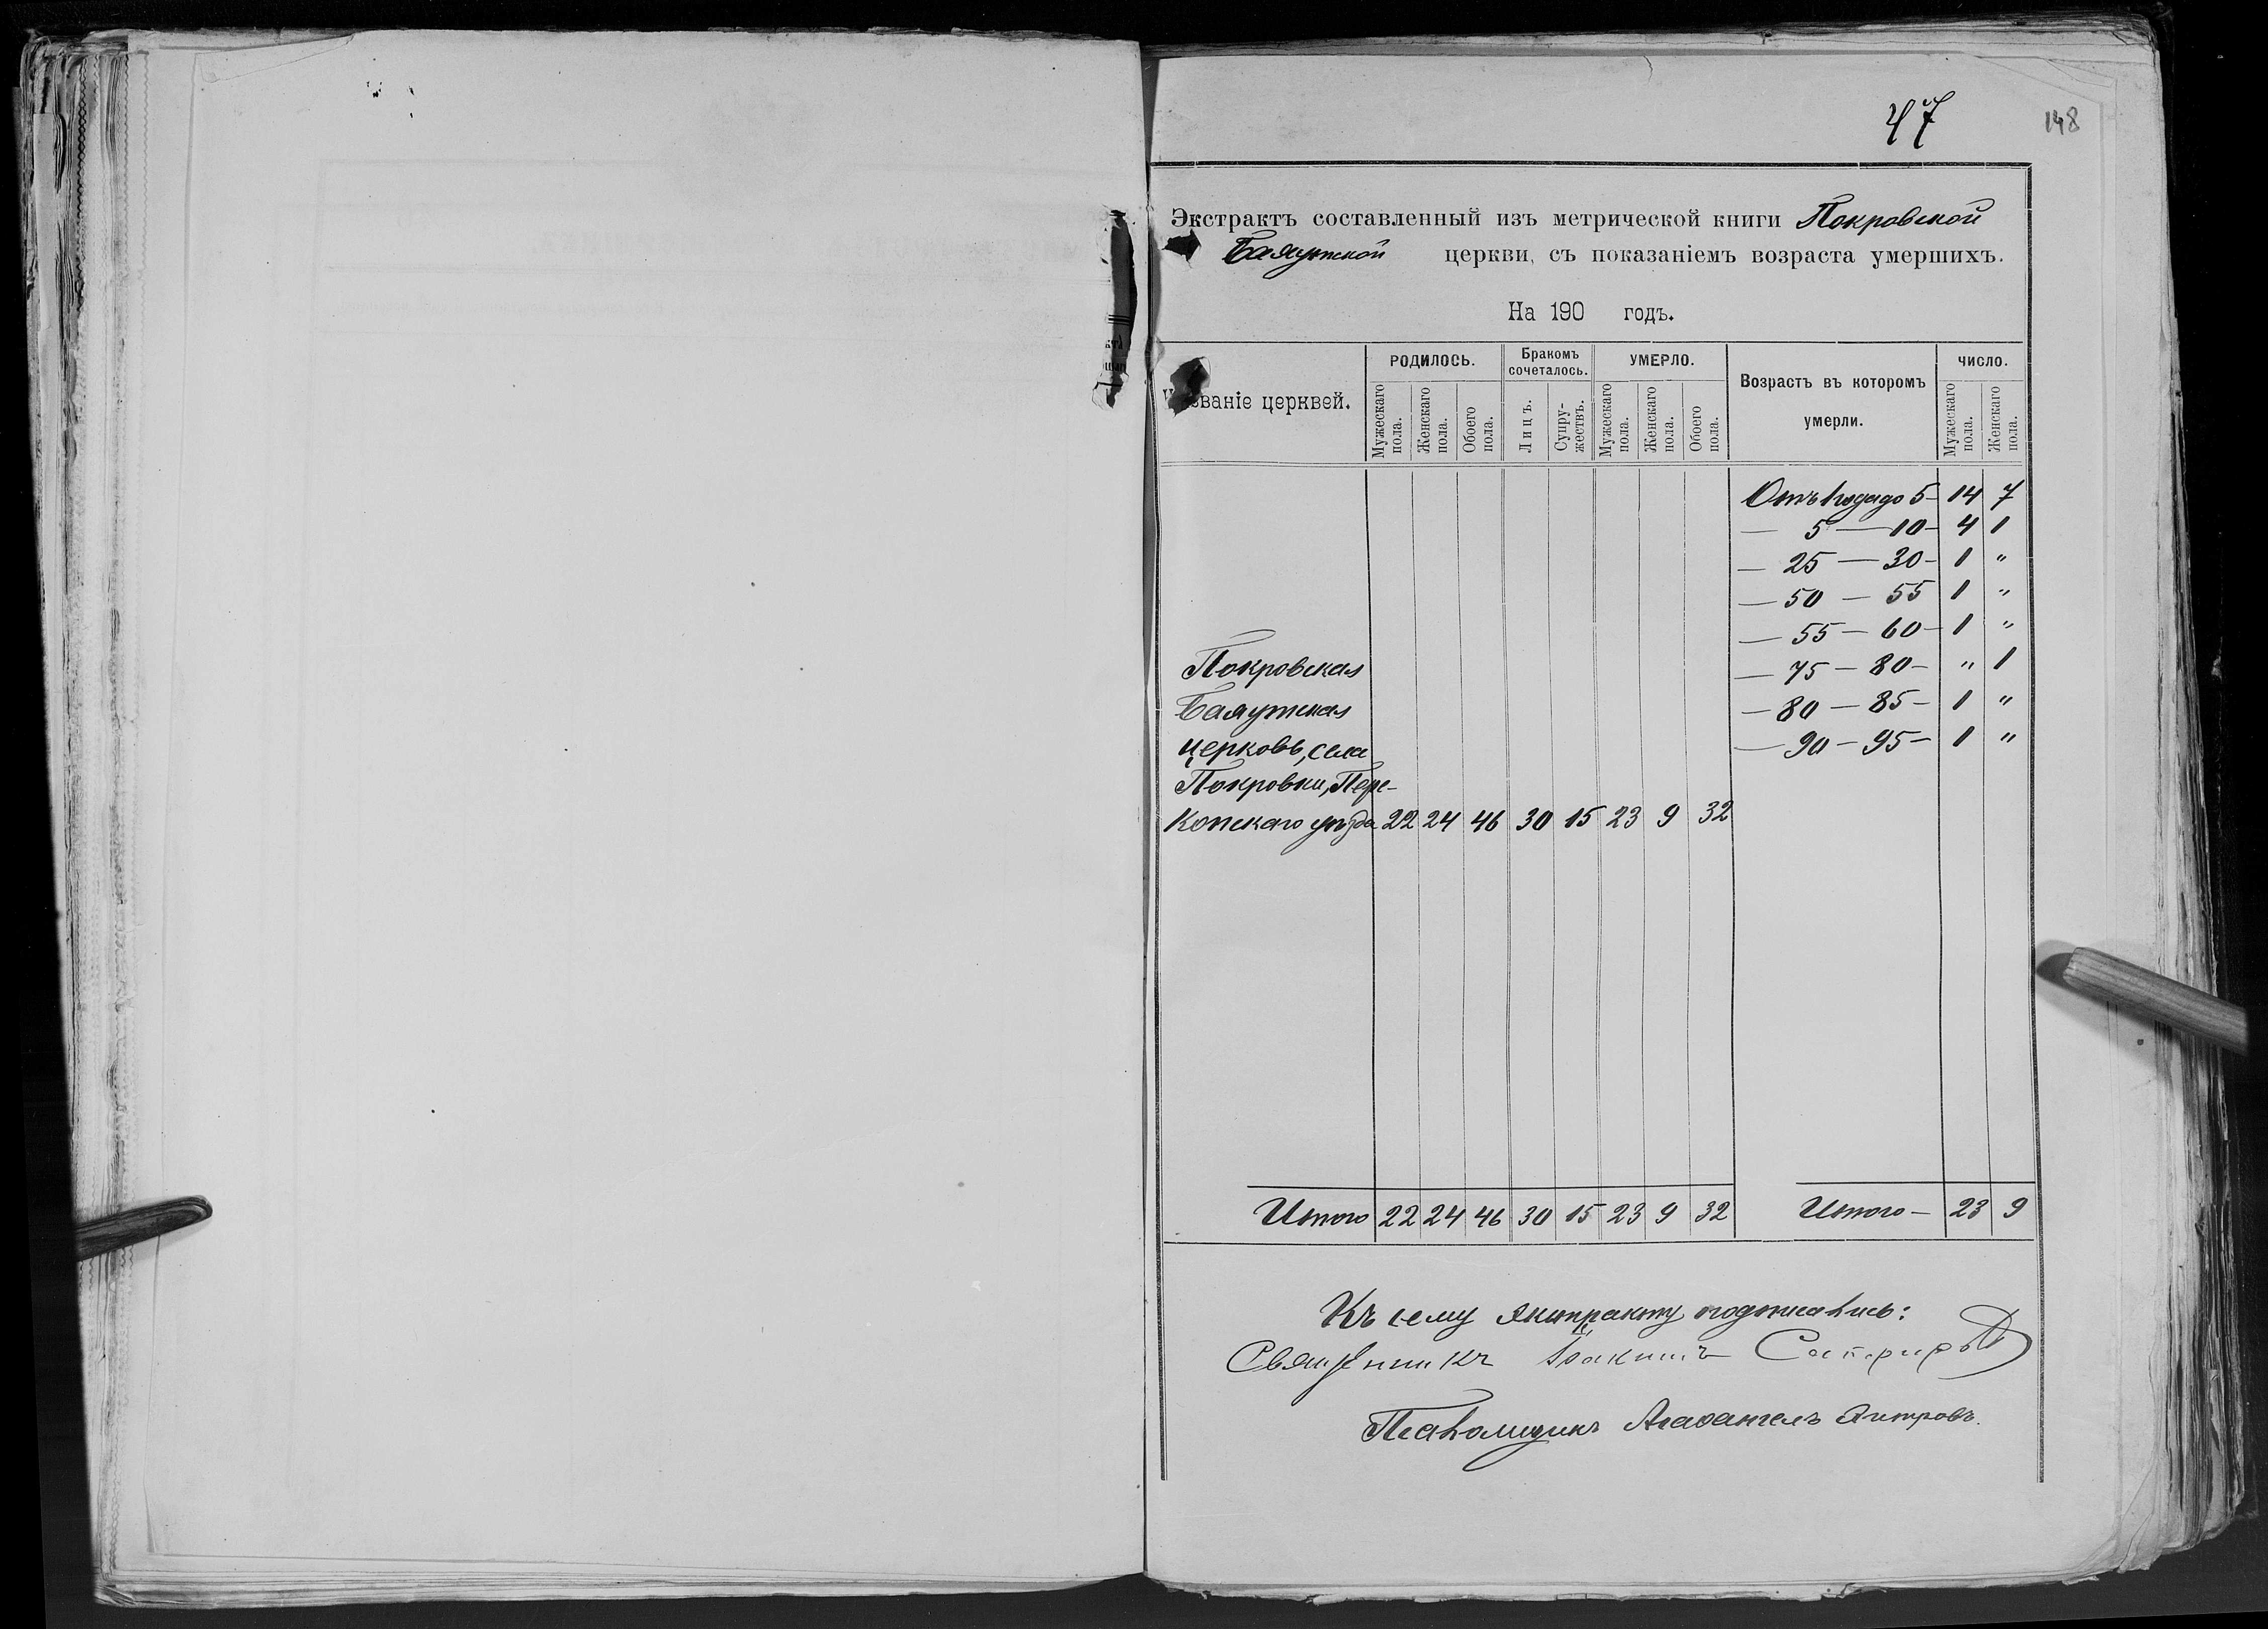 47
148
Экстрактъ составленный изъ метрической книги Покровской
Баяутской церкви, съ показаніемъ возраста умершихъ.
На 190 годъ.
Названіе церквей. РОДИЛОСЬ. Бракомъ сочеталось. УМЕРЛО. Возрастъ въ которомъ умерли. ЧИСЛО.
Мужескаго пола. Женскаго пола. Обоего пола. Лицъ. Супружествъ. Мужескаго пола. Женскаго пола. Обоего пола. Мужескаго пола. Женскаго пола.
Отъ 1 года до 5 - 14 7
— 5 — 10 - 4 1
— 25 — 30 - 1 "
— 50 — 55 1 "
— 55 — 60 - 1 "
— 75 — 80 - " 1
— 80 — 85 - 1 "
— 90 — 95 - 1 "
Покровская
Баяутская
церковь, села
Покровки, Пере-
копскаго уѣзда 22 24 46 30 15 23 9 32
Итого 22 24 46 30 15 23 9 32 Итого - 23 9
Къ сему экстракту подписались:
Священникъ
Псаломщикъ Агаѳангелъ